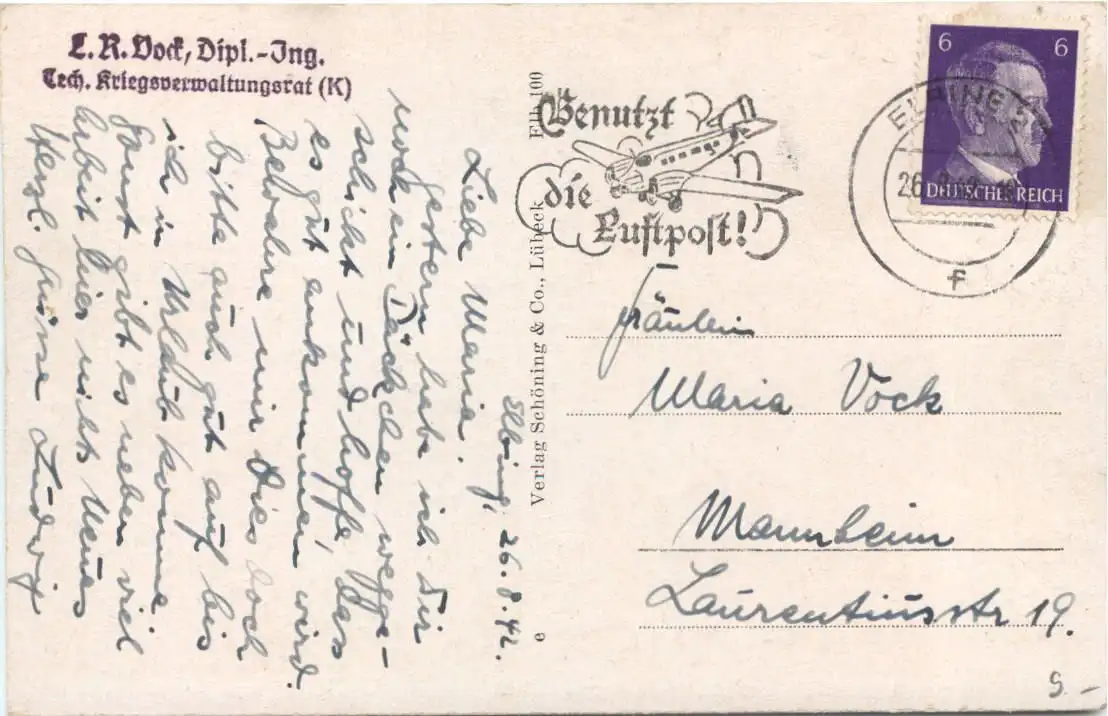 L. R. Vock, Dipl.-Ing.
Tech. Kriegsverwaltungsrat (K)
Elbing, 26.8.42.
Liebe Maria.
Gestern habe ich Dir
noch ein Päckchen wegge-
schickt und hoffe, dass
es gut ankommen wird.
Bewahre mir dies doch
bitte auch gut auf bis
ich in Urlaub komme.
Sonst gibt es neben viel
Arbeit hier nichts Neues
Herzl. Grüsse Ludwig
Verlag Schöning & Co., Lübeck
Elb 100
e
Benutzt
die
Luftpost!
ELBING
26
f
6 6
DEUTSCHES REICH
Fräulein
Maria Vock
Mannheim
Laurentiusstr 19.
9.-